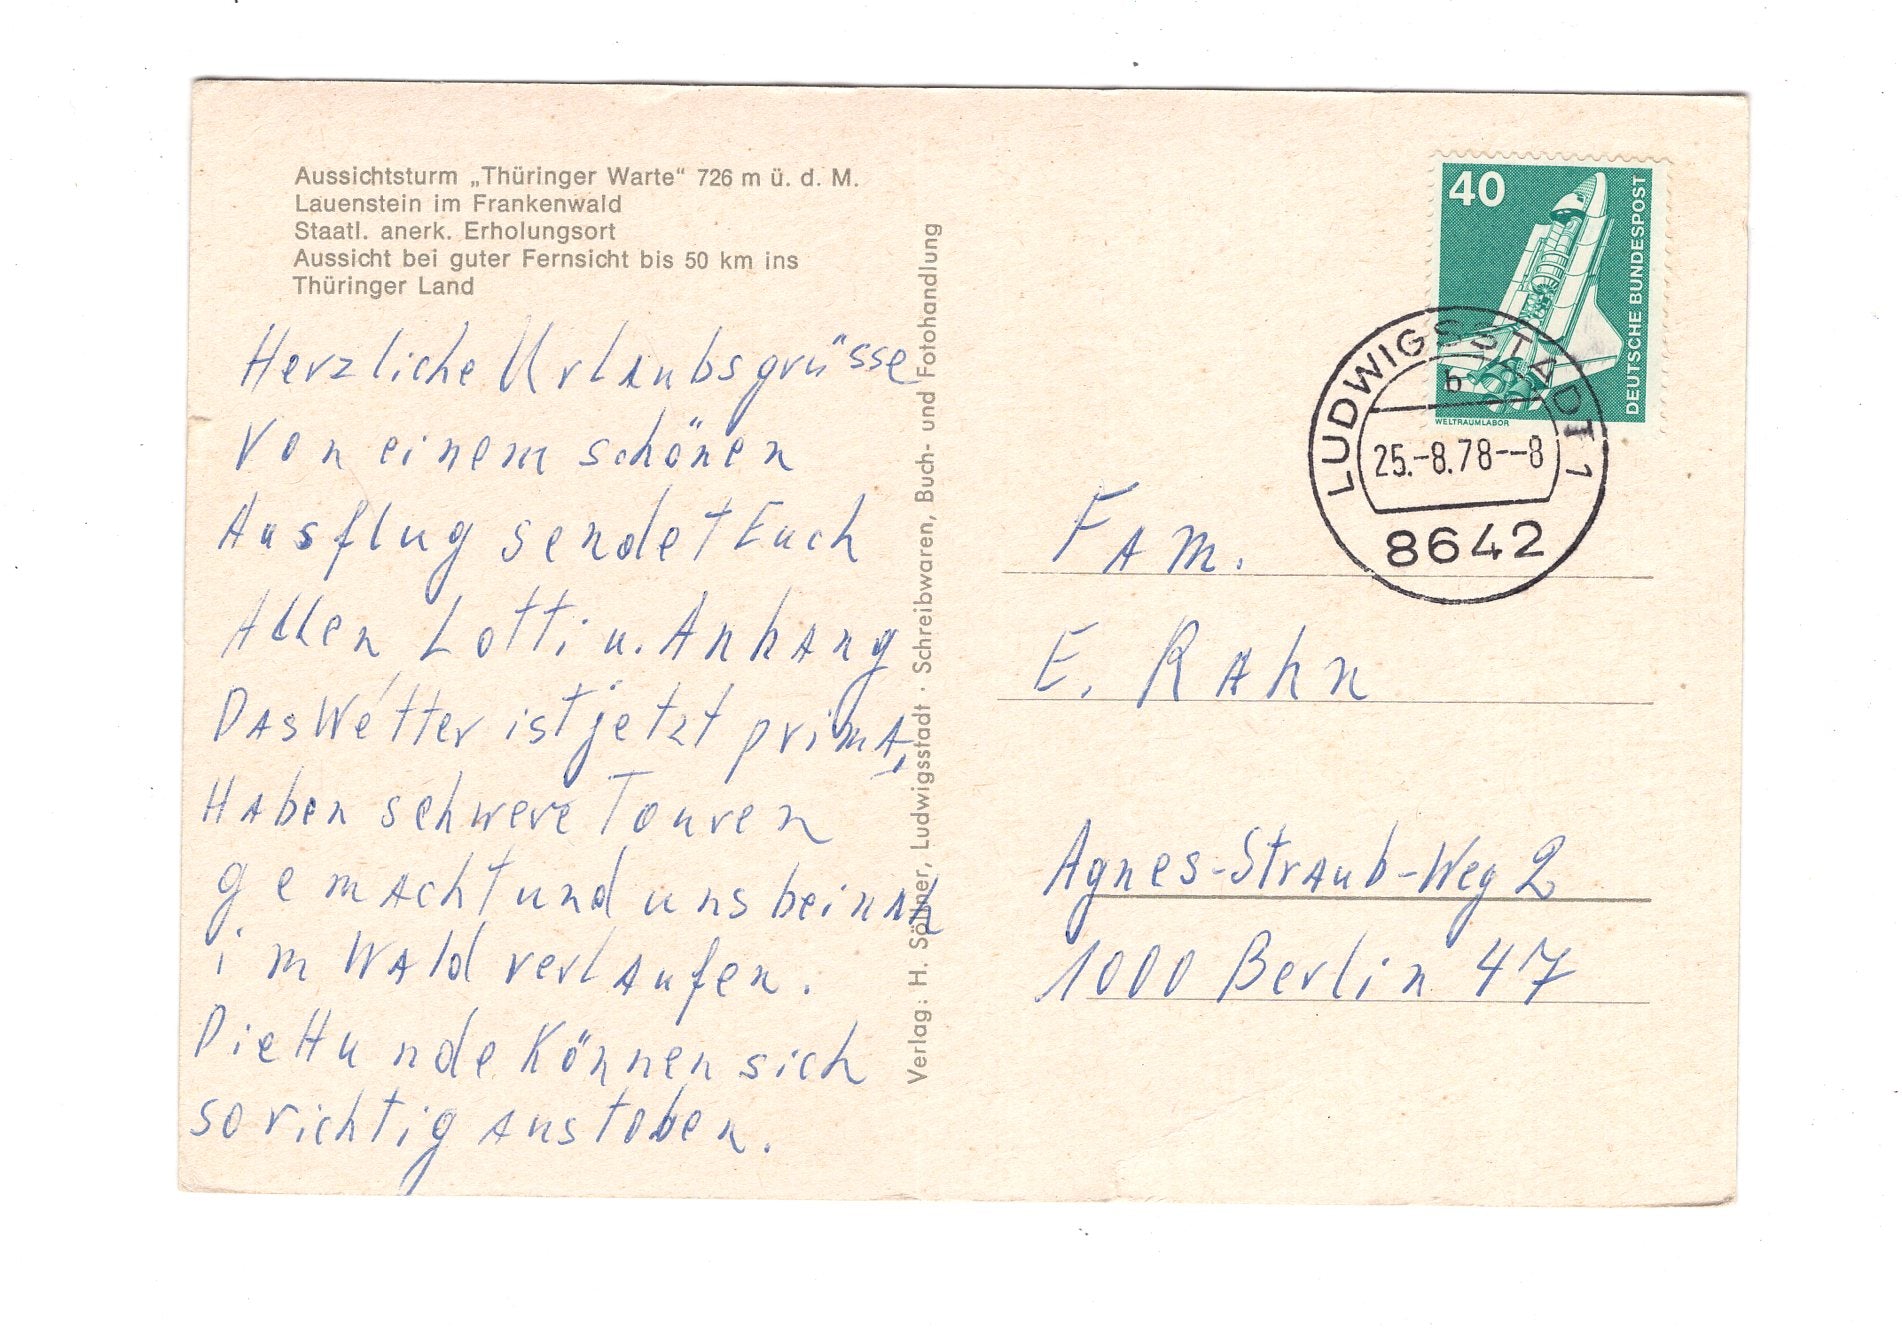 Aussichtsturm „Thüringer Warte“ 726 m ü. d. M.
Lauenstein im Frankenwald
Staatl. anerk. Erholungsort
Aussicht bei guter Fernsicht bis 50 km ins
Thüringer Land
Herzliche Urlaubsgrüsse
Von einem schönen
Ausflug sendet Euch
Allen Lotti u. Anhang
Das Wetter ist jetzt prima,
Haben schwere Touren
gemacht und uns beinah
im Wald verlaufen.
Die Hunde können sich
so richtig austoben.
Verlag: H. Söllner, Ludwigsstadt · Schreibwaren, Buch- und Fotohandlung
40
DEUTSCHE BUNDESPOST
WELTRAUMLABOR
LUDWIGSSTADT 1
b
25.-8.78--8
8642
Fam.
E. Rahn
Agnes-Straub-Weg 2
1000 Berlin 47